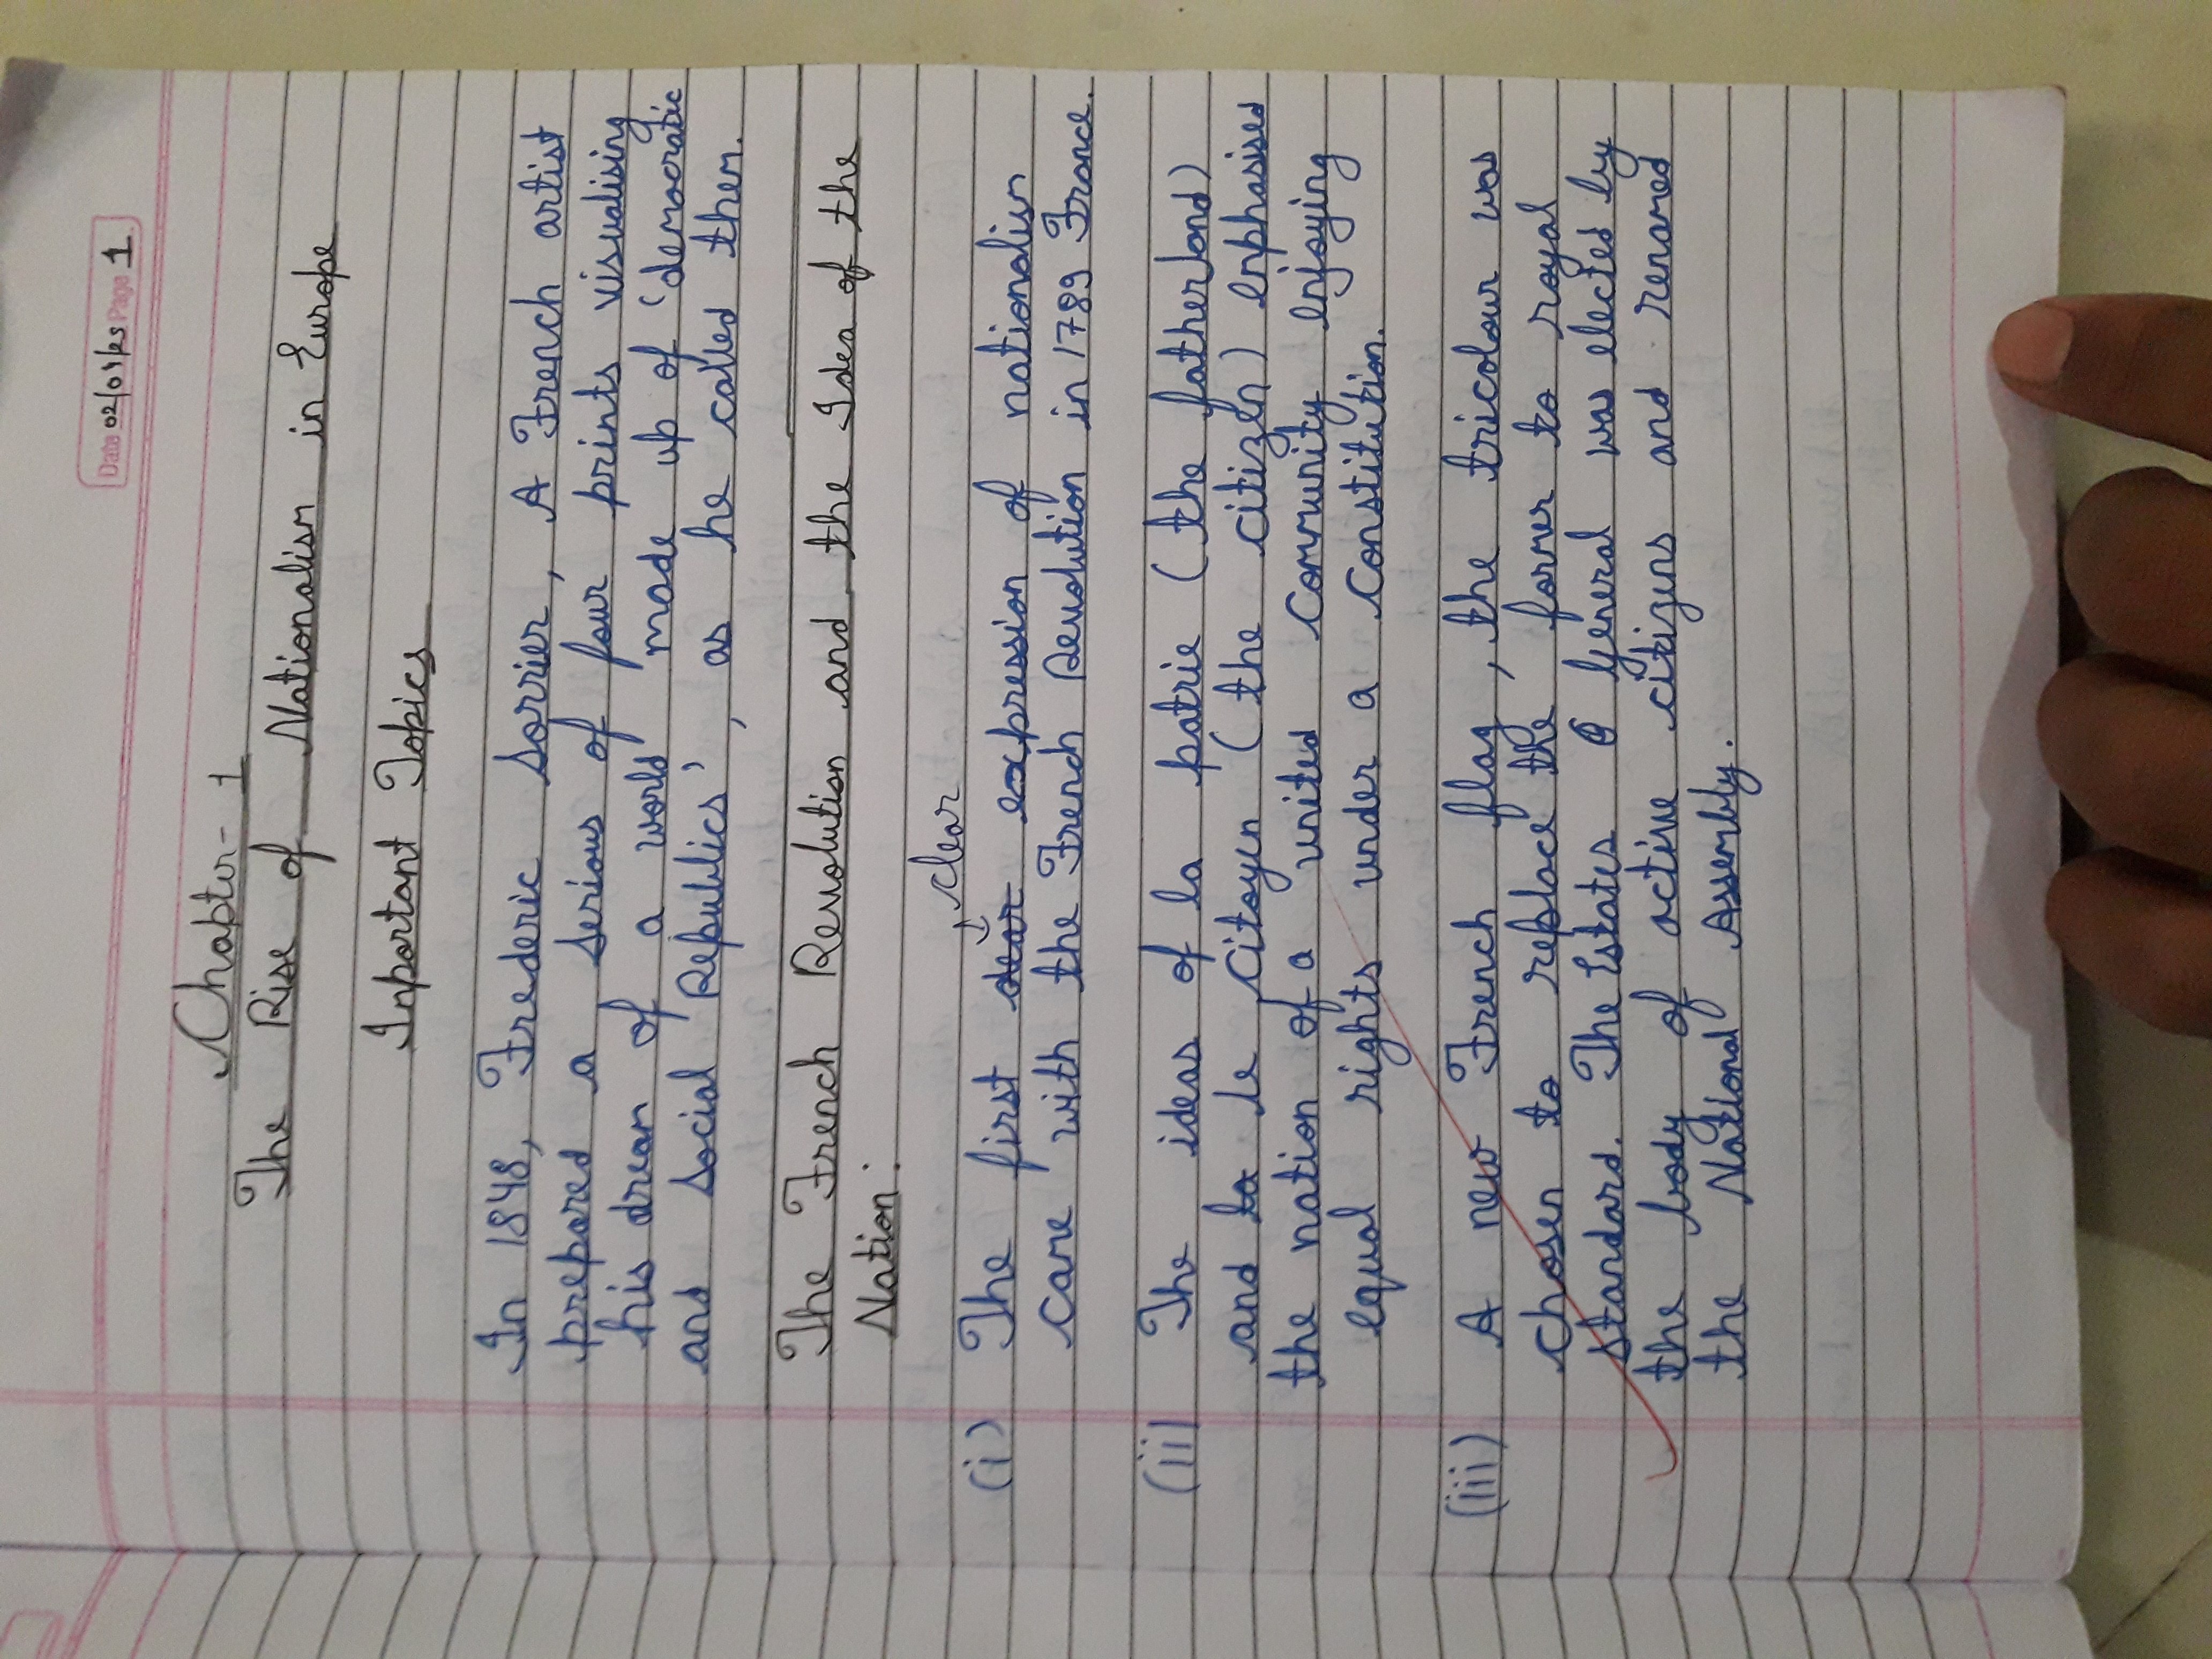 Date 02/04/23 Page 1
Chapter-1
The Rise of Nationalism in Europe
Important Topics
In 1848, Frederic Sorrier, A French artist
prepared a serious of four prints visualising
his dream of a world made up of 'democratic
and Social Republics', as he called them.
The French Revolution and the Idea of the
Nation.
clear
(i) The first dear expression of nationalism
came with the French Revolution in 1789 France.
(ii) The ideas of la patrie (the fatherland)
and la le Citoyen (the citizen) emphasised
the nation of a united community enjoying
equal rights under a constitution.
(iii) A new French flag, the tricolour was
chosen to replace the former to royal
standard. The Estates General was elected by
the body of active citizens and renamed
the National Assembly.